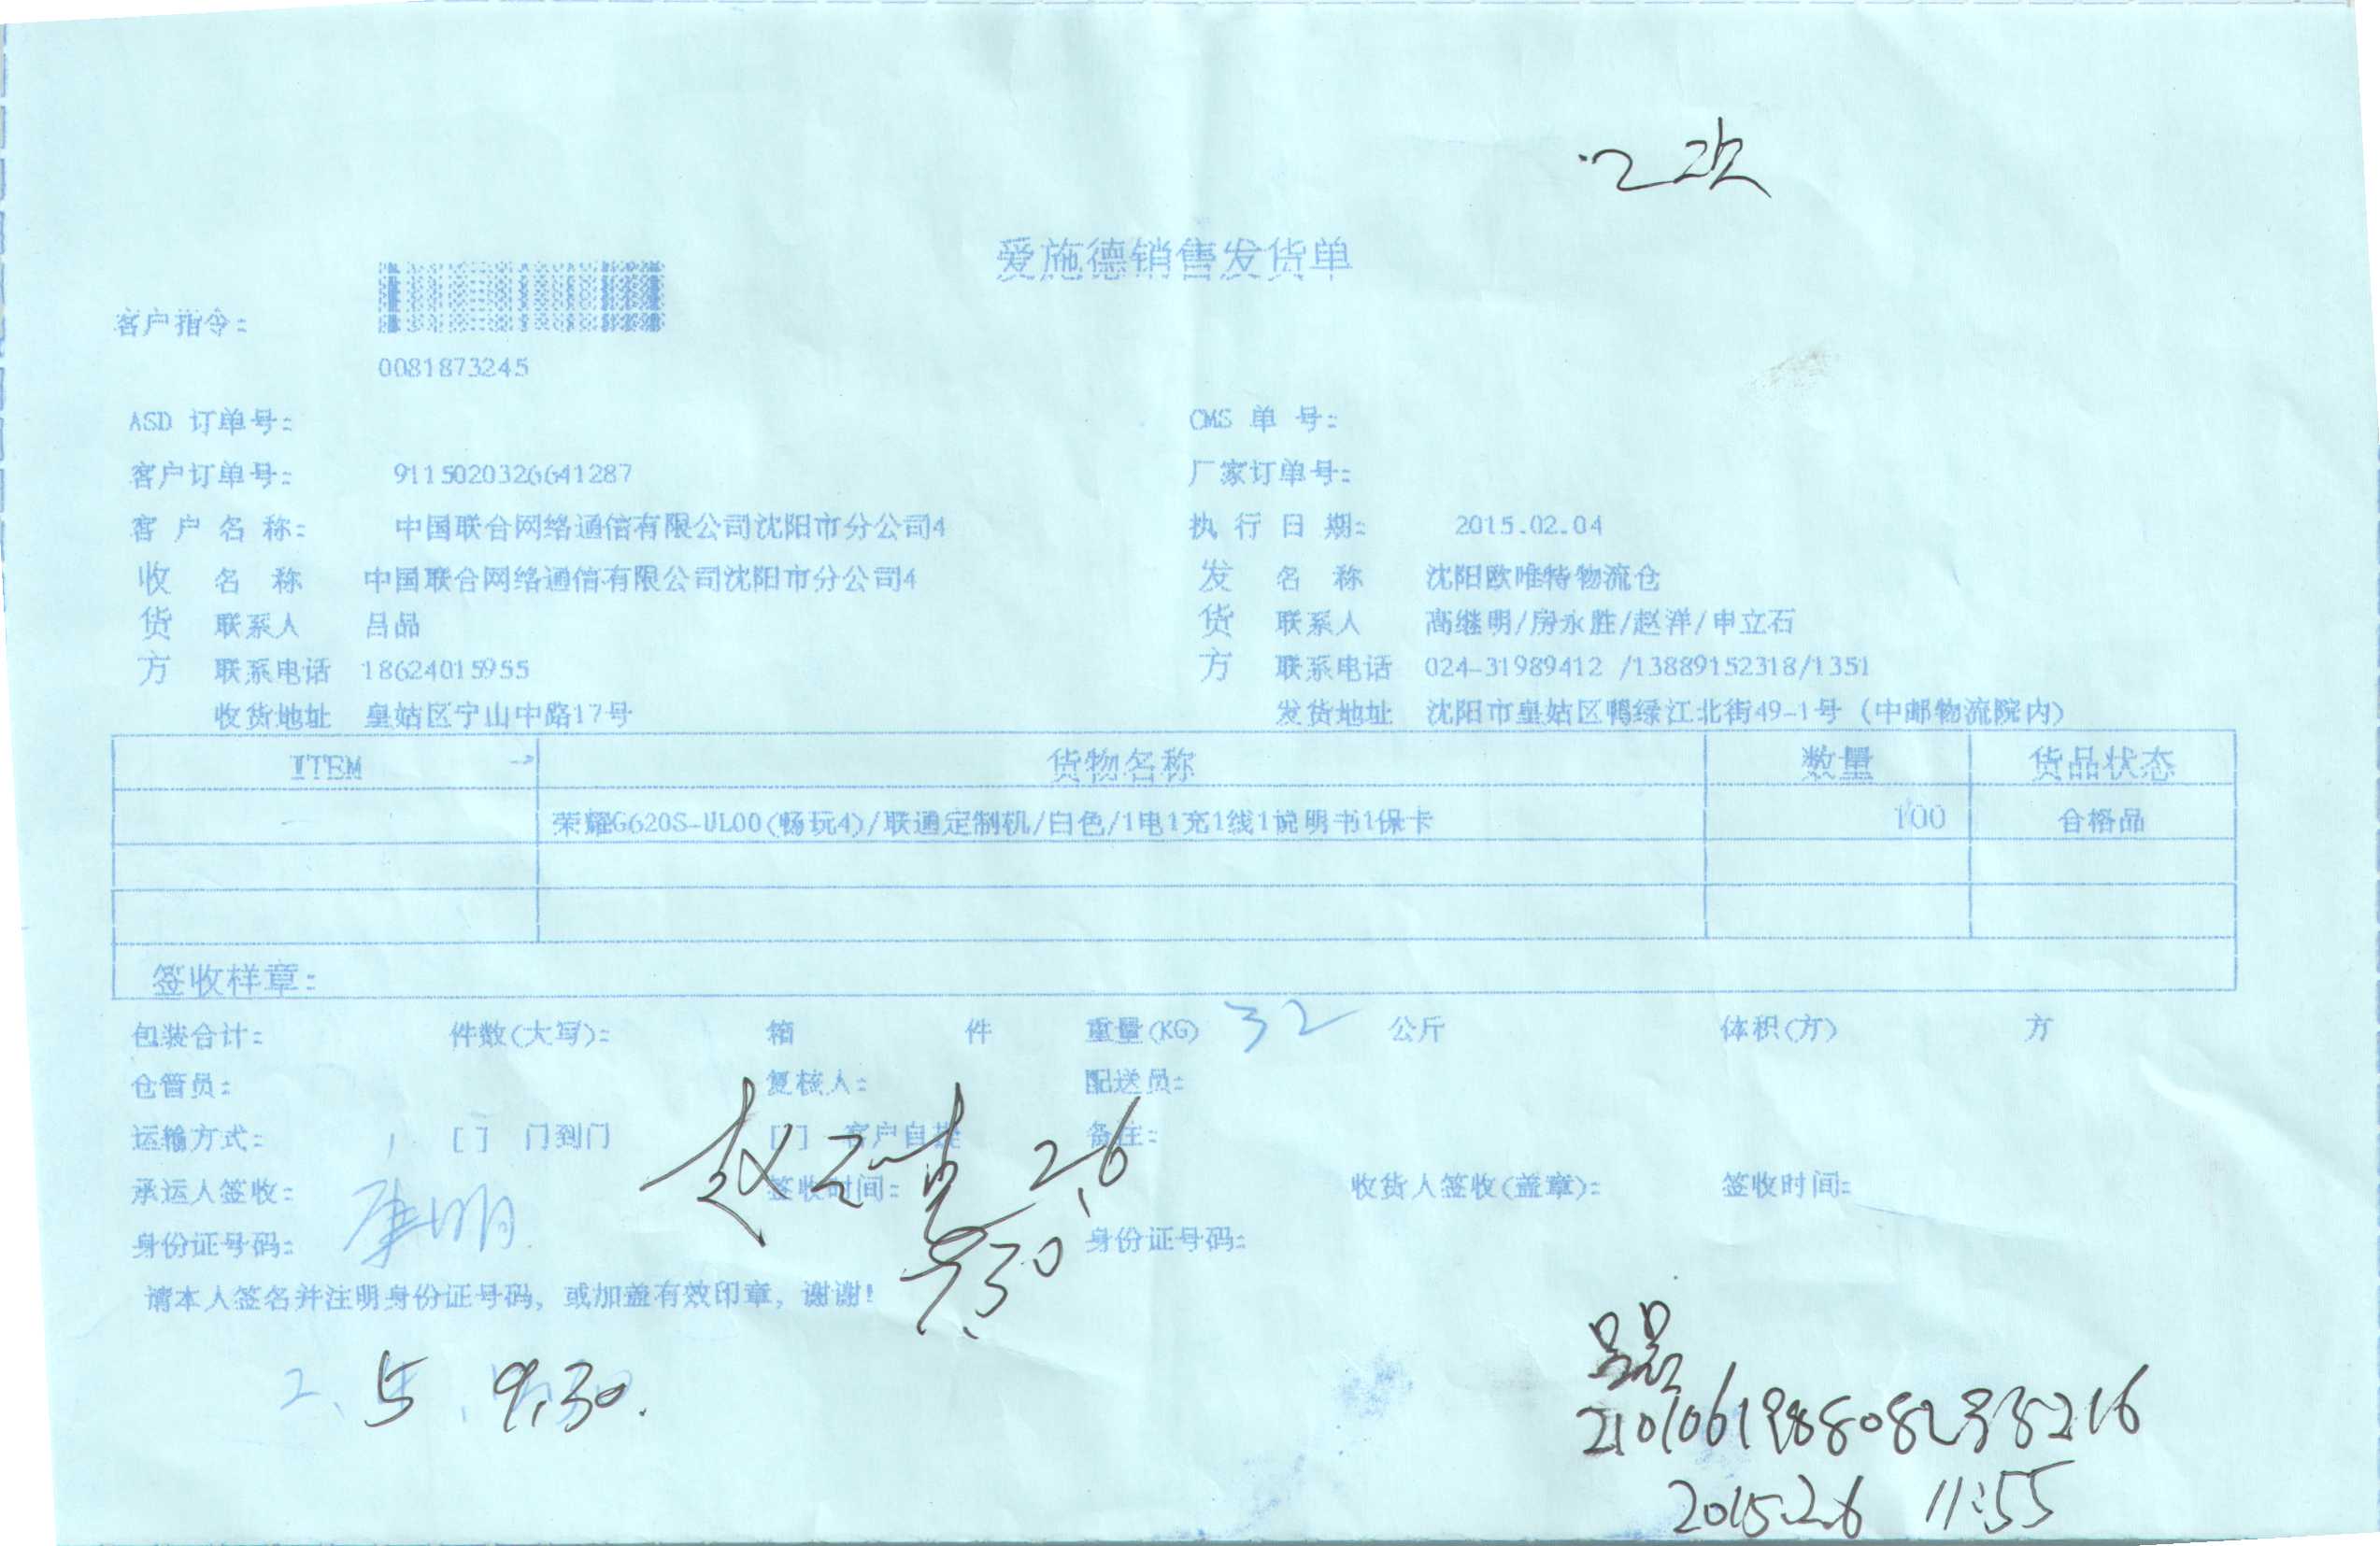 2次
爱施德销售发货单
客户指令:
0081873245
ASD 订单号: CMS 单 号:
客户订单号: 9115020326641287 厂家订单号:
客 户 名 称: 中国联合网络通信有限公司沈阳市分公司4 执 行 日 期: 2015.02.04
收 名 称 中国联合网络通信有限公司沈阳市分公司4 发 名 称 沈阳欧唯特物流仓
货 联系人 吕品 货 联系人 高继明/房永胜/赵洋/申立石
方 联系电话 18624015955 方 联系电话 024-31989412 /13889152318/1351
收货地址 皇姑区宁山中路17号 发货地址 沈阳市皇姑区鸭绿江北街49-1号 (中邮物流院内)
ITEM 货物名称 数量 货品状态
荣耀G620S-UL00(畅玩4)/联通定制机/白色/1电1充1线1说明书1保卡 100 合格品
签收样章:
包装合计: 件数(大写): 箱 件 重量(KG) 32 公斤 体积(方) 方
仓管员: 复核人: 配送员:
运输方式: [ ] 门到门 [ ] 客户自提 备注:
2.6
承运人签收: 签收时间: 收货人签收(盖章): 签收时间:
身份证号码: 9.30 身份证号码:
请本人签名并注明身份证号码, 或加盖有效印章, 谢谢!
2.5 9.30.
2015.2.6 11:55